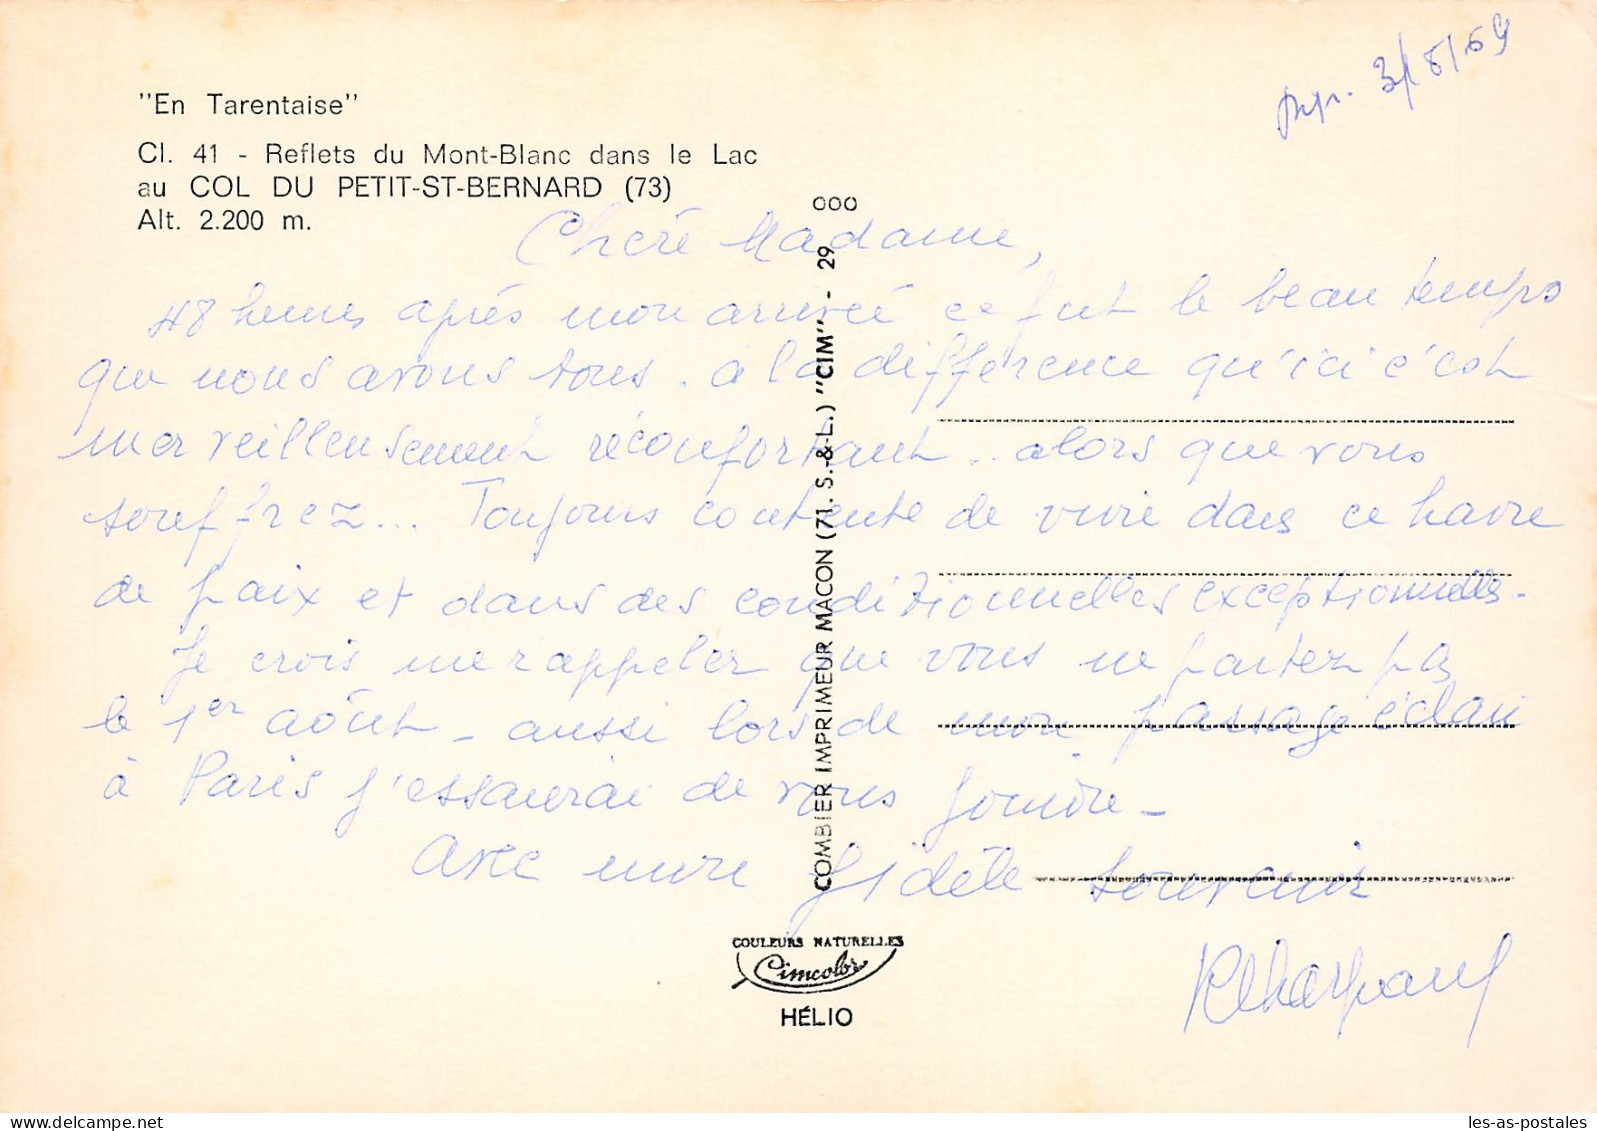 "En Tarentaise"
Cl. 41 - Reflets du Mont-Blanc dans le Lac
au COL DU PETIT-ST-BERNARD (73)
Alt. 2.200 m.
3/8/69
Chère Madame,
48 heures après mon arrivée ce fut le beau temps
que nous avons tous. à la différence qu'ici c'est
merveilleusement réconfortant.. alors que vous
souffrez... Toujours contente de vivre dans ce havre
de paix et dans des conditionnelles exceptionnelles.
Je crois me rappeler que vous ne partez pas
le 1er août - aussi lors de mon passage éclair
à Paris j'essaierai de vous joindre -
Avec mon fidèle souvenir
000
COMBIER IMPRIMEUR MACON (71. S.-&-L.) "CIM" - 29
COULEURS NATURELLES
Cimcolor
HÉLIO
les-as-postales